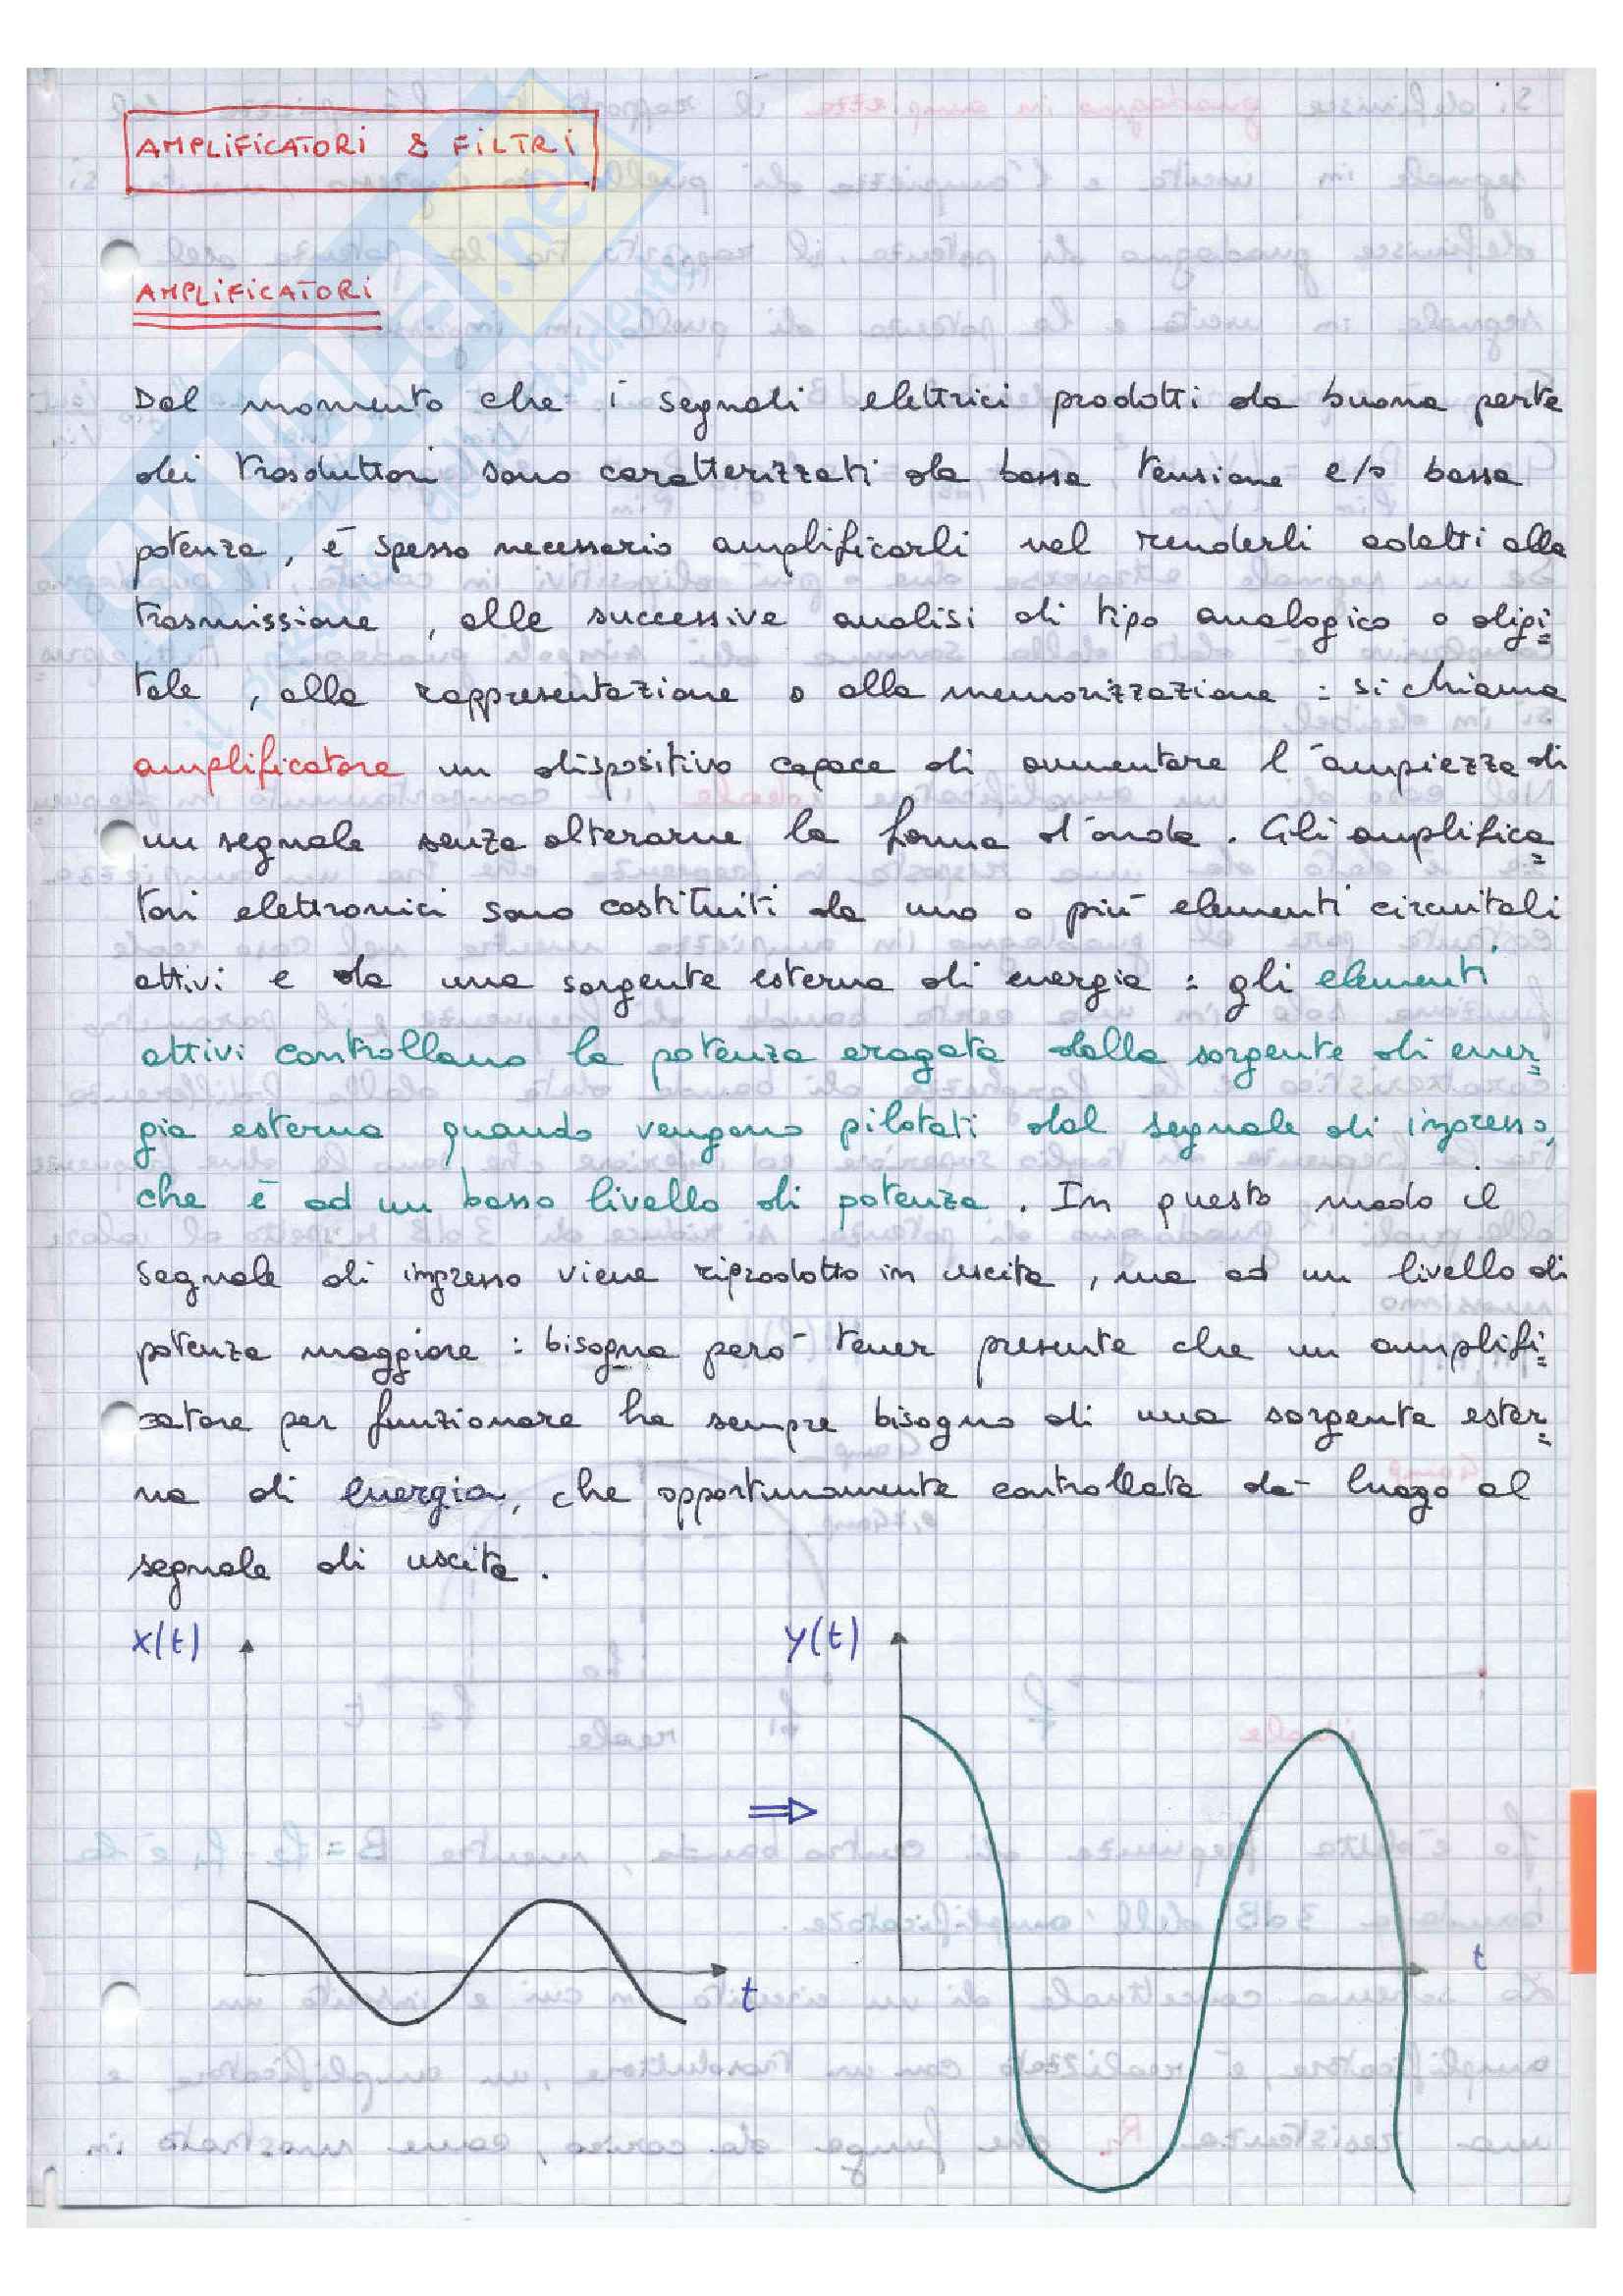 AMPLIFICATORI & FILTRI
AMPLIFICATORI
Dal momento che i segnali elettrici prodotti da buona parte
dei trasduttori sono caratterizzati da bassa tensione e/o bassa
potenza, è spesso necessario amplificarli nel renderli adatti alla
trasmissione, alle successive analisi di tipo analogico o digi=
tale, alla rappresentazione o alla memorizzazione : si chiama
amplificatore un dispositivo capace di aumentare l'ampiezza di
un segnale senza alterarne la forma d'onda. Gli amplifica=
tori elettronici sono costituiti da uno o più elementi circuitali
attivi e da una sorgente esterna di energia : gli elementi
attivi controllano la potenza erogata dalla sorgente di ener=
gia esterna quando vengono pilotati dal segnale di ingresso,
che è ad un basso livello di potenza. In questo modo il
segnale di ingresso viene riprodotto in uscita, ma ad un livello di
potenza maggiore : bisogna però tener presente che un amplifi=
catore per funzionare ha sempre bisogno di una sorgente ester=
na di energia, che opportunamente controllata dà luogo al
segnale di uscita.
x(t) y(t)
⇒
t t